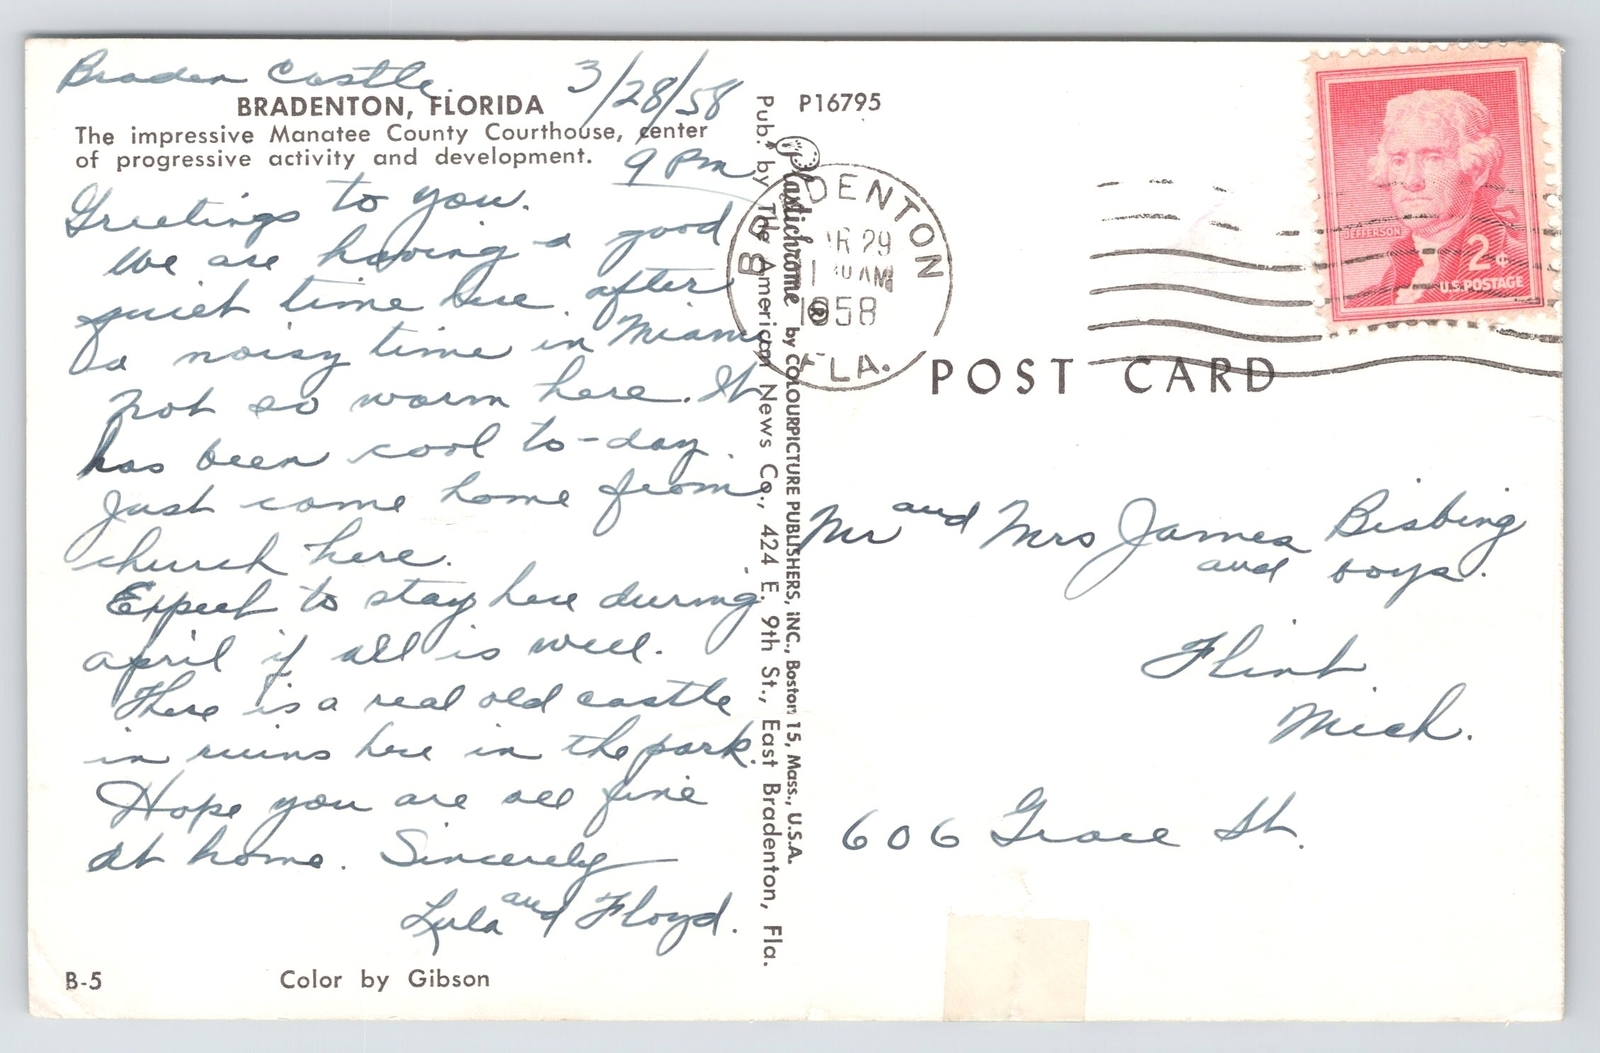 Braden Castle. 3/28/58
BRADENTON, FLORIDA
The impressive Manatee County Courthouse, center
of progressive activity and development.
9 Pm
Greetings to you.
We are having a good
quiet time here after
a noisy time in Miami
not so warm here. It
has been cool to-day.
Just came home from
church here.
Expect to stay here during
april if all is well.
There is a real old castle
in ruins here in the park.
Hope you are all fine
at home. Sincerely
Lula and Floyd.
B-5 Color by Gibson
Pub. by The American News Co., 424 E. 9th St., East Bradenton, Fla.
Plastichrome ® by COLOURPICTURE PUBLISHERS, INC., Boston 15, Mass., U.S.A.
P16795
BRADENTON
AR 29
1 30 AM
1958
FLA.
JEFFERSON
2¢
U.S. POSTAGE
POST CARD
Mr and Mrs James Bisbing
and boys.
Flint
Mich.
606 Grace St.